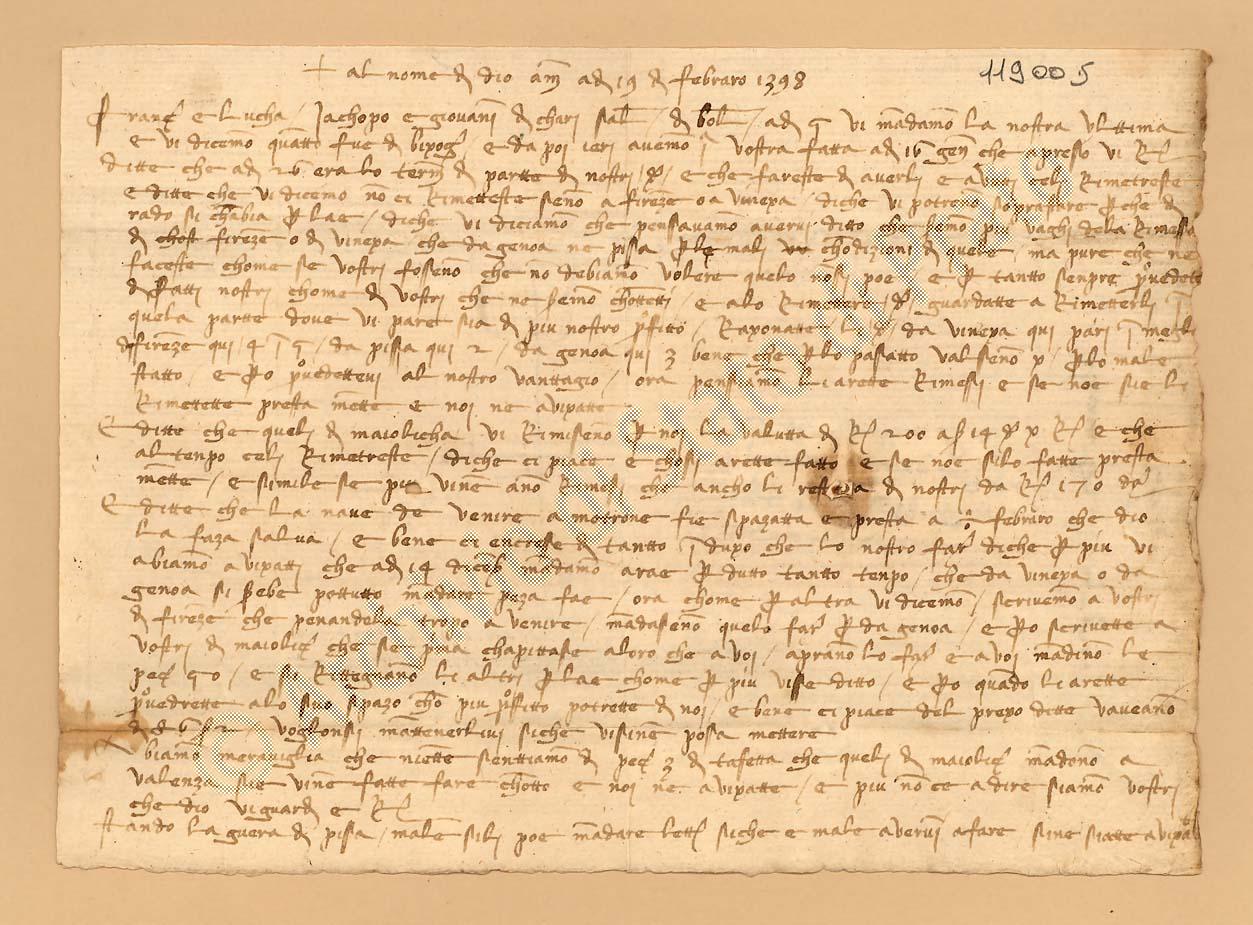 + al nome di dio am̄ adi 19 di febraro 1398
119005
Franc̄ e Lucha / Jachopo e giovani di chari sal / di bol / adi 9 vi madamo la nostra ulttima
e vi dicemo quatto fue di bixog̃ / e da poi ieri avemo j vostra fatta adi 16 gen̄ che apresso vi
ditte che adi 26 era lo term̃ di partte di nostri / e che fareste di averli e avuti celi Rimetreste
e ditte che vi dicemo no ci Rimetteste seno a fireze o a vinexa / diche vi potreno soprastare p̱che di
rado si chabia p̱ lae / diche vi diciamo che pensavamo avervi ditto che semo piu vaghi dela Rimessa
di fireze o di vinexa che da genoa ne pissa p̱ le mali chodizioni di quele / ma pure che ne
faceste chome se vostri foseno che no debiamo volere quelo nosi poe / e p̱ tantto senpre p̱vedete
di fatti nostri chome di vostri che ne semo chotteti / e alo Rimettere guardatte a Rimetterli j
quela partte dove vi pare sia di piu nostro p̱fitto / Raxonatte da vinexa qui pari j megli
di fireze qui 4 j 5 / da pissa qui 2 / da genoa qui 3 bene che p̱ lo pasatto valseno x / p̱ lo male
statto / e p̱o p̱vedettevi al nostro vanttagio / ora pensiamo li arette Rimessi e se noe sie li
Rimettette presta mette e noi ne avixatte
E ditte che queli di maiolicha vi Rimiseno p̱ noi la valutta di 200 a s 14 d x e che
al tenpo celi Rimetreste / diche ci piace e chosi arette fatto e se noe silo fatte presta
mette / e simile se piu vine ano Rimesi che ancho li resteva di nostri da 170
E ditte che la nave de venire a motrone fie spazatta e presta a febraro che dio
la faza salva / e bene ci encrese di tantto jduxo che lo nostro far̃ diche p̱ piu vi
abiamo avixatti che adi 14 diceb̃ madamo arae p̱dutto tantto tenpo / che da vinexa o da
genoa si sebe pottutto madare peza fae / ora chome p̱ altra vi dicemo / scrivemo a vostri
di fireze che penandela tropo a venire / madaseno quelo far̃ p̱ da genoa / e p̱o scrivette a
vostri di maiolic̃ che se p̱ma chapittase aloro che a voi / aprano lo far̃ e a voi madino le
pec̃ 90 / e si Rittegnano li altri p̱ lae chome p̱ piu visse ditto / e p̱o quado li arette
p̱vedrette alo suo spazo cho piu p̱fitto potrette di noi / e bene ci piace del prexo ditte vaveano
voglonsi mattenerlivi siche visine possa mettere
Abiamo meraviglia che niette senttiamo di pec̃ 3 di tafetta che queli di maiolic̃ madono a
valenza / sie vine fatte fare chotto e noi ne avixatte / e piu no ce a dire siamo vostri
che dio vi guardi e
stando la guera di pissa / male sili poe madare lett̃ siche e male avervi a fare sine siatte avixati